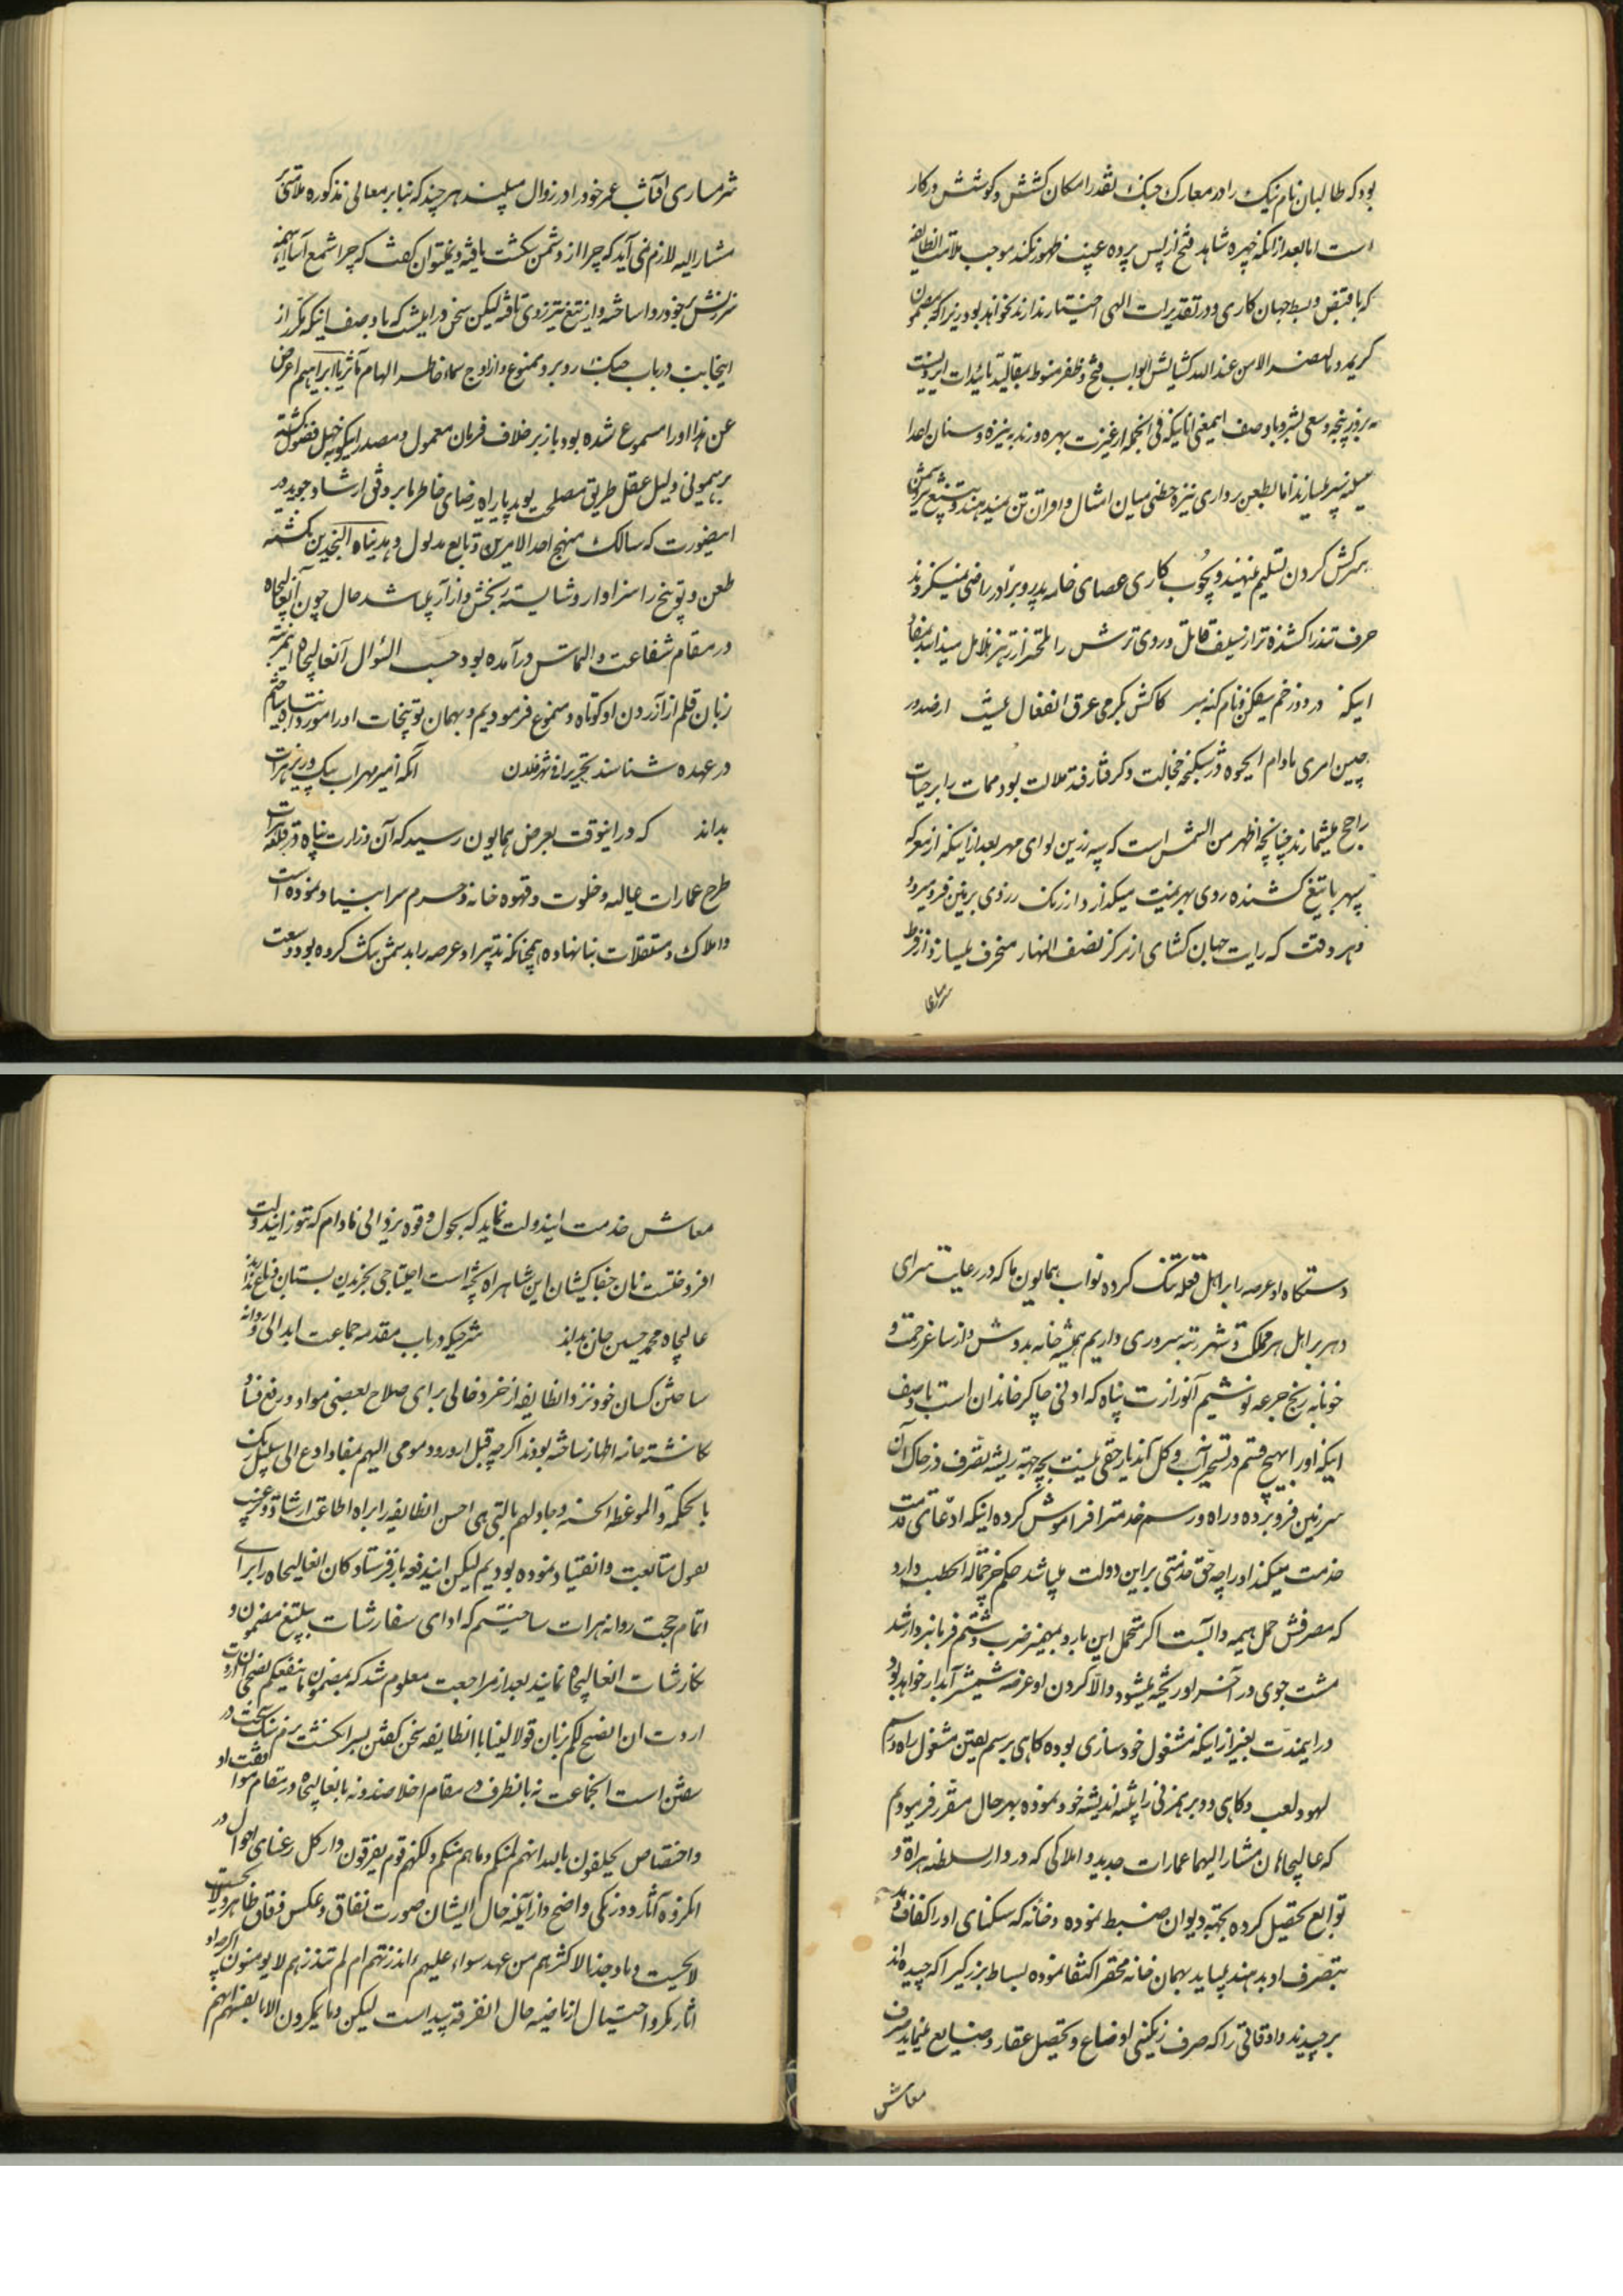 بود که طالبان نام نیک را در معارک جنک بقدر امکان کشش و کوشش در کار
است اما بعد از آنکه چهره شاهد فتح از پس پرده غیب ظهور نکند موجب ملامت انطایفه
که با قبض و بسط جهان کاری و در تقدیرات الهی اختیار ندارند نخواهد بود زیرا که بمضمون
کریمه و ما النصر الا من عند الله کشایش ابواب فتح و ظفر منوط بمقالید تائیدات ایزدیست
نه بزور پنجه و سعی بشر و با وصف ایمعنی انانیکه فی الجمله از غیرت بهره ورند به نیزه و سنان اعدا
سینه سپر میسازند اما بطعن رواری نیزه خطی میان امثال و اقران تن نمیدهند و به تیغ تیز دشمن
سرکش کردن تسلیم مینهند و بچوب کاری عصای خامه پدر و برادر راضی نمیکردند
حرف تند را کشنده تر از سیف قاتل و روی ترش را تلختر از زهر هلاهل میدانند بمفاد
اینکه در دوزخم بیفکن و نام کنه مبر کاتش بکرمی عرق انفعال نیست از صدور
چنین امری مادام الحیوه در شکنجه خجالت و کرفتار قید ملالت بوده ممات را بر حیات
راجح میشمارند چنانچه اظهر من الشمس است که سپه زرین لوای مهر بعد از اینکه از معرکه
سپهر با تیغ کشنده روی بهزیمت میکذارد از رنک زردی بزمین فرو میرود
و هر وقت که رایت جهان کشای از مرکز نصف النهار منحرف میسازد از فرط
شرمساری
شرمساری آفتاب عمر خود را در زوال میبیند هر چند که بنا بر معانی مذکوره ملامتی بر
مشار الیه لازم نمی آید که چرا از دشمن شکست یافته و نمیتوان کفت که چرا شمع آسا اینهمه
سرزنش بر خود روا ساخته و از تیغ تیز روی تافته لیکن سخن در اینست که با وصف اینکه مکرر از
اینجانب در باب جنک روبرو ممنوع و از اوج سماء خاطر الهام مآثر یا ابراهیم اعرض
عن هذا او را مسموع شده بود باز بر خلاف فرمان معمول و مصدر اینکونه جهل فضول کشته
برهنمونی دلیل عقل طریق مصلحت پوید یا راه رضای خاطر ما بر وفق ارشاد جوید در
اینصورت که سالک منهج احد الامرین و تابع مدلول و هدیناه النجدین نکشته
طعن و توبیخ را سزاوار و شایسته رنجش و آزار میباشد حال چون آنعالیجاه
در مقام شفاعت و التماس درآمده بود حسب السؤال آنعالیجاه اینمرتبه
زبان قلم از آزردن او کوتاه و ممنوع فرمودیم و بهمان توبیخات او را مورد انتباه ساختیم
در عهده شناسند تحریرا فی شهر فلان آنکه امیر مهراب بیک وزیر هرات
بداند که در اینوقت بعرض همایون رسید که آن وزارت پناه در قلعه هرات
طرح عمارات عالیه و خلوت و قهوه خانه و حرم سرا بنیاد نموده است
و املاک و مستقلات بنا نهاده همچنانکه تدبیر او عرصه را بدشمن تنک کرده بود وسعت
دستکاه او عرصه را بر اهل قلعه تنک کرده نواب همایون ما که در رعایت سرای
دهر بر اهل هر مملکت و شهر رتبه سروری داریم همیشه خانه بدوش و از ساغر زحمت و
خونابه رنج جرعه نوشیم آنوزارت پناه که ادنی چاکر خاندان است با وصف
اینکه او را بهیچ قسم در تسخیر آنب و کل آندیار حقی نیست بچه جهة ریشه تصرف در خاک آن
سرزمین فرو برده و راه و رسم خدمت را فراموش کرده اینکه ادعای قدمت
خدمت میکند او را چه حق خدمتی بر این دولت میباشد حکم خر حمالة الحطب دارد
که مصرفش حمل هیمه و آبست اکر متحمل این بار و بمهمیز ضرب و شتم فرمانبردار شد
مشت جوی در آخر او ریخته میشود و الا کردن او عرضه شمشیر آبدار خواهد بود
در اینمدت بغیر از اینکه مشغول خودسازی بوده کاهی برسم یقین مشغول راه و رسم
لهو و لعب و کاهی دوبرهمزنی را پیشه اندیشه خود نموده بهر حال مقرر فرمودیم
که عالیجاهان مشار الیهما عمارات جدید و املاکی که در دار السلطنه هراة و
توابع تحصیل کرده بجهته دیوان ضبط نموده و خانه که سکنای او را کفاف دهد
بتصرف او بدهند میباید بهمان خانه محقر اکتفا نموده بساط بزرکی را که چیده اند
برچیدند و اوقاتی را که صرف رنکینی اوضاع و تحصیل عقار و ضیاع مینماید صرف
معاش
معاش خدمت ایندولت نماید که بحول و قوه یزدانی مادام که تنور ایندولت
افروختست نان جفاکیشان این شاهراه پخته است احتیاجی بخریدن بستان و باغ ندارند
عالیجاه محمد حسین خان بداند شرحیکه در باب مقدمه جماعت ابدالی و روانه
ساختن کسان خود نزد انطایفه از خرد خالی برای صلاح بعضی مواد و رفع فساد
نکاشته خامه اظهار ساخته بودند اکر چه قبل از ورود مومی الیهم بمفاد ادع الی سبیل ربک
بالحکمة و الموعظة الحسنه و جادلهم بالتی هی احسن انطایفه را براه اطاعت ارشاد و ترغیب
بقبول متابعت و انقیاد نموده بودیم لیکن ایندفعه باز فرستادکان انعالیجاه را برای
اتمام حجت روانه هرات ساختیم که ادای سفارشات بتبلیغ مضمون و
نکارشات انعالیجاه نمایند بعد از مراجعت معلوم شد که بمضمون ما ینفعکم نصحی ان
اردت ان انصح لکم زبان قولا لینا با انطایفه سخن کفتن بسر انکشت بر سنک سخت در
سفتن است انجماعت نه بانطرف در مقام اخلاصند و نه بانعالیجاه در مقام موالفت و
و اختصاص یحلفون بالله انهم لمنکم و ما هم منکم و لکنهم قوم یفرقون و از کل رعنای احوال
انکروه آثار دورنکی واضح و از آینه حال ایشان صورت نفاق و عکس وفاق ظاهر و
و ما وجدنا لاکثرهم من عهد سواء علیهم ءانذرتهم ام لم تنذرهم لا یومنون اکر چه
آثار مکر و احتیال از ناصیه حال انفرقه پیداست لیکن و ما یمکرون الا بانفسهم